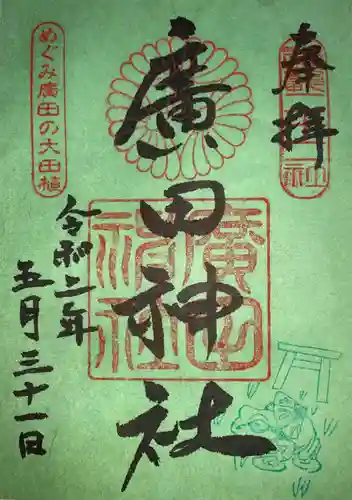 奉拝
廣田神社
めぐみ廣田の大田植
令和二年
五月三十一日
廣田
神社